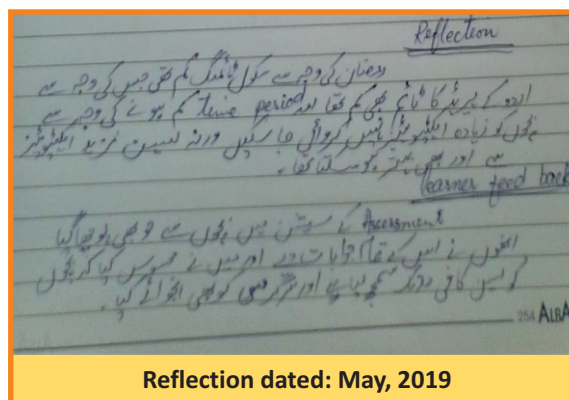 Reflection
رمضان کی وجہ سے سکول ٹائمنگ کم تھی جس کی وجہ سے
اردو کے پیریڈ کا ٹائم بھی کم تھا اور time period کم ہونے کی وجہ سے
بچوں کو زیادہ ایکٹیویٹیز نہیں کروائی جا سکیں ورنہ لیسن مزید ایکٹیویٹیز
سے اور بھی بہتر ہو سکتا تھا۔
learner feed back
Assessment کے سیشن میں بچوں سے جو بھی پوچھا گیا
انھوں نے اس کے تمام جوابات دیے اور میں نے محسوس کیا کہ بچوں
کو لیسن کافی سمجھ آیا ہے اور کو بھی انجوائے کیا۔
254 ALBA
Reflection dated: May, 2019